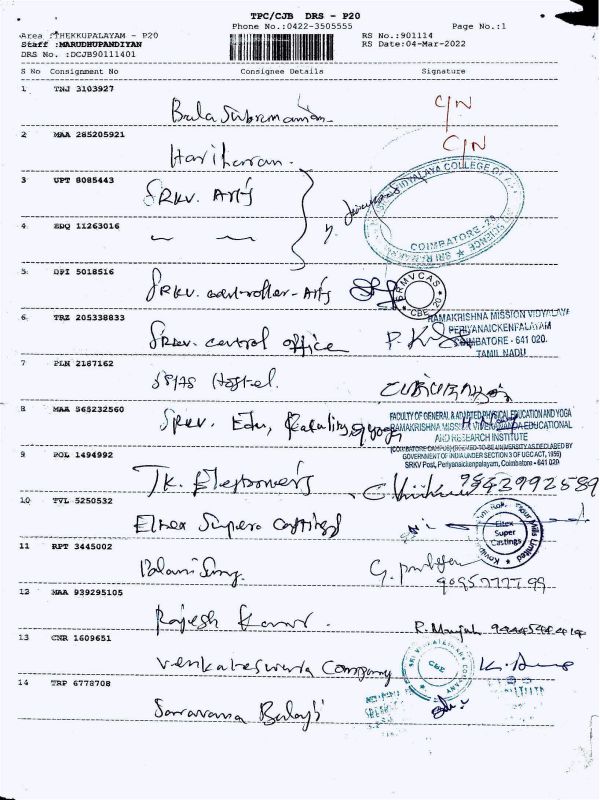 TPC/CJB DRS - P20
Phone No.:0422-3505555
Page No.:1
Area :THEKKUPALAYAM - P20
RS No.:901114
Staff :MARUDHUPANDIYAN
RS Date:04-Mar-2022
DRS No. :DCJB90111401
S No Consignment No Consignee Details Signature
1 TNJ 3103927
Bala Subramanian C/N
2 MAA 285205921
Hariharan. C/N
3 UPT 8085443
SRKV. Arts
4 EDQ 11263016
COIMBATORE-20
5 DPI 5018516
SRKV. controller - Arts
SRMVCAS CBE-20
6 TRZ 205338833
SRKV. central office
RAMAKRISHNA MISSION VIDYALAYA
PERIYANAICKENPALAYAM
COIMBATORE - 641 020.
TAMIL NADU
7 PLN 2187162
Hostel.
8 MAA 565232560
SRKV. Edu,
FACULTY OF GENERAL & ADAPTED PHYSICAL EDUCATION AND YOGA
RAMAKRISHNA MISSION VIVEKANANDA EDUCATIONAL
AND RESEARCH INSTITUTE
(COIMBATORE CAMPUS) (DEEMED-TO-BE UNIVERSITY AS DECLARED BY
GOVERNMENT OF INDIA UNDER SECTION 3 OF UGC ACT, 1956)
SRKV Post, Periyanaickenpalayam, Coimbatore - 641 020
9 POL 1494992
TK. 9842992589
10 TVL 5250532
Eltex Supero castings
Eltex
Super
Castings
11 RPT 3445002
12 MAA 939295105
Rajesh Kumar.
13 CNR 1609651
Venkateswara Company
CBE
14 TRP 6778708
Saravana Balaji